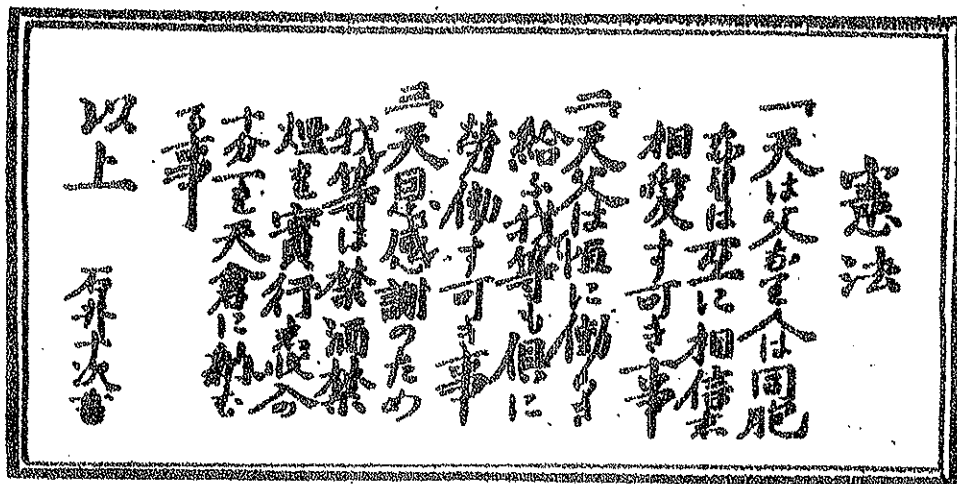 憲法
一天は父なり人は同胞
なれば互に相信じ
相愛す可き事
二天父は恒に働き
給ふ我等も倶に
勞働す可き事
三天恩感謝のため
我等は禁酒禁
烟を實行し收入の
十分一を天倉に納む
可き事
以上
石井十次書